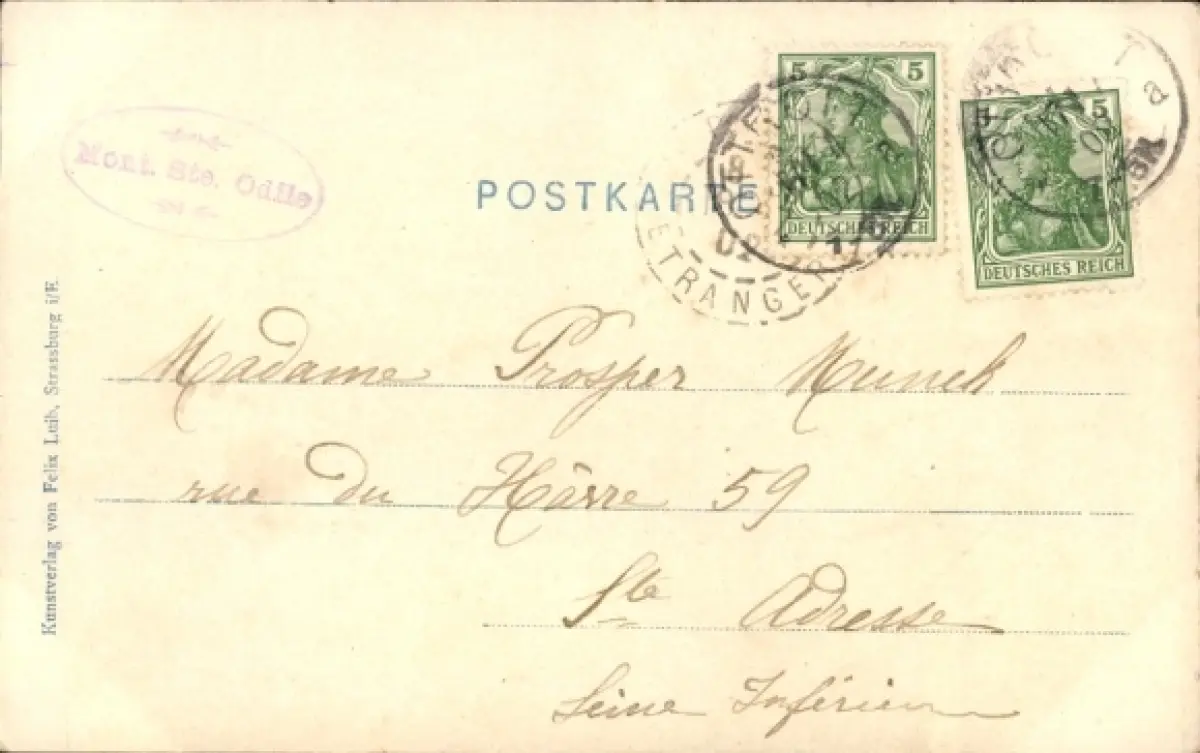 Mont. Ste. Odile
POSTKARTE
5 5
DEUTSCHES REICH
5
DEUTSCHES REICH
OTTROTT
a
ETRANGER
02
Kunstverlag von Felix Luib, Strassburg i/E.
Madame Prosper Munck
rue du Hâvre 59
Ste Adresse
Seine Inférieure